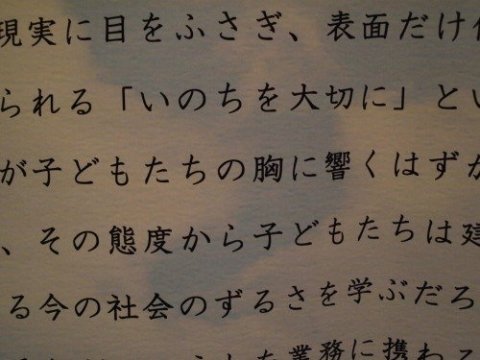 現実に目をふさぎ、表面だけ
られる「いのちを大切に」とい
が子どもたちの胸に響くはずが
、その態度から子どもたちは建
る今の社会のずるさを学ぶだろ
業務に携わる